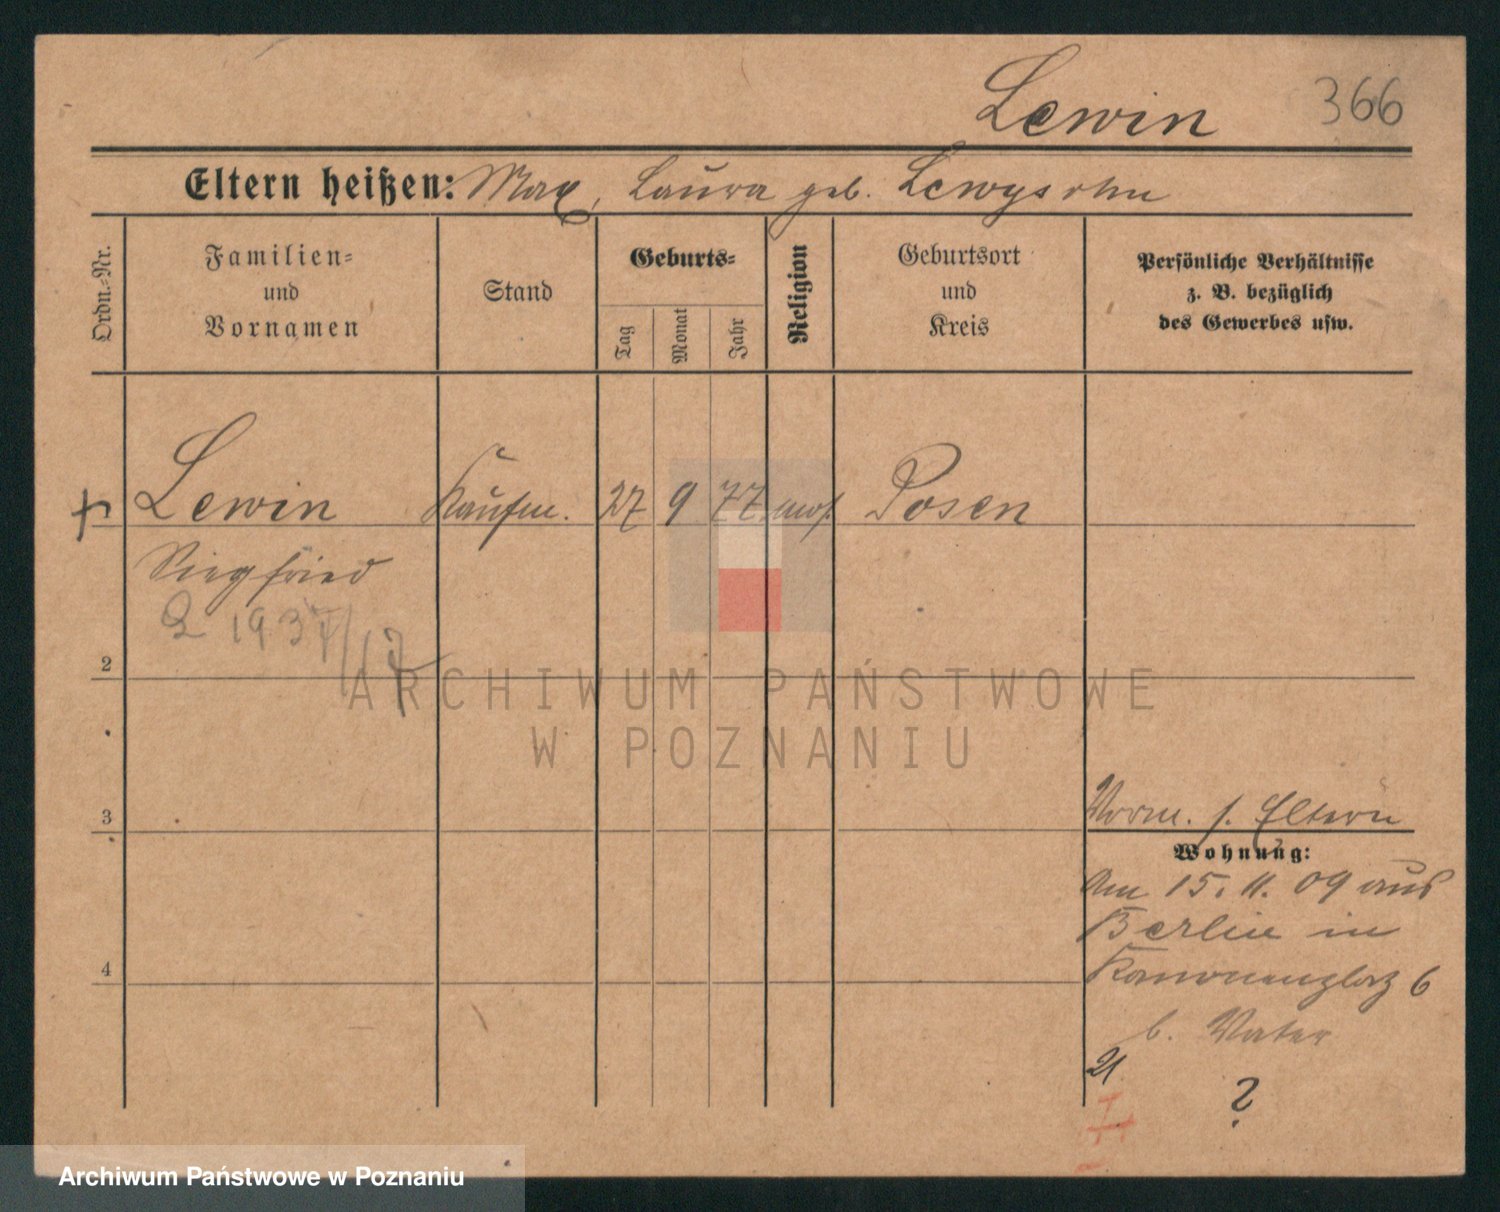 Lewin 366
Eltern heißen: Max, Laura geb. Lewysohn
Ordn.-Nr.
Familien-
und
Vornamen
Stand
Geburts-
Tag
Monat
Jahr
Religion
Geburtsort
und
Kreis
Persönliche Verhältnisse
z. B. bezüglich
des Gewerbes usw.
Lewin Kaufm. 27 9 77 mos. Posen
Siegfried
2
ARCHIWUM PAŃSTWOWE
W POZNANIU
3
Vorm. s. Eltern
Wohnung:
Am 15. 11. 09 aus
Berlin in
4
Kanonenplatz 6
b. Vater
21
?
Archiwum Państwowe w Poznaniu